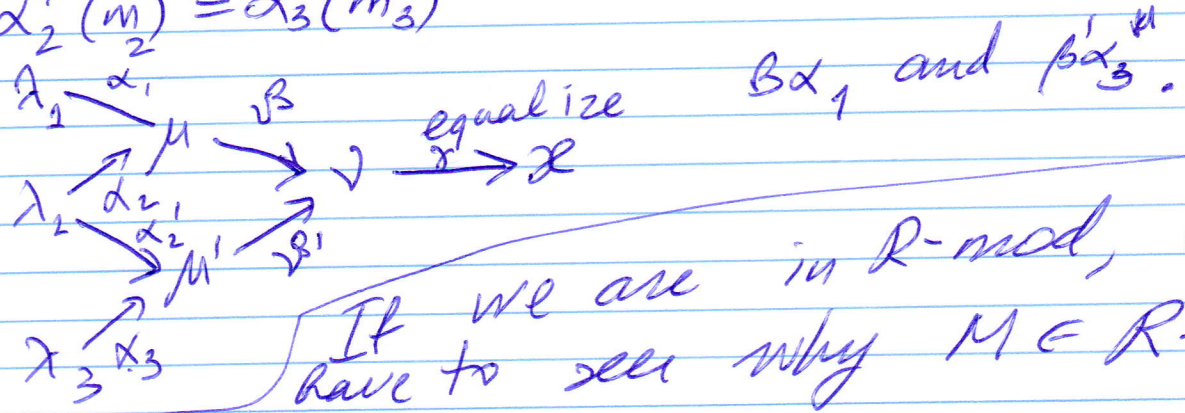 α₂'(m₂) = α₃(m₃)
λ₁ α₁ μ β ν equalize γ ϰ βα₁ and β'α₃.
λ₂ α₂ α₂' μ' β'
λ₃ α₃
If we are in R-mod,
have to see why M ∈ R-